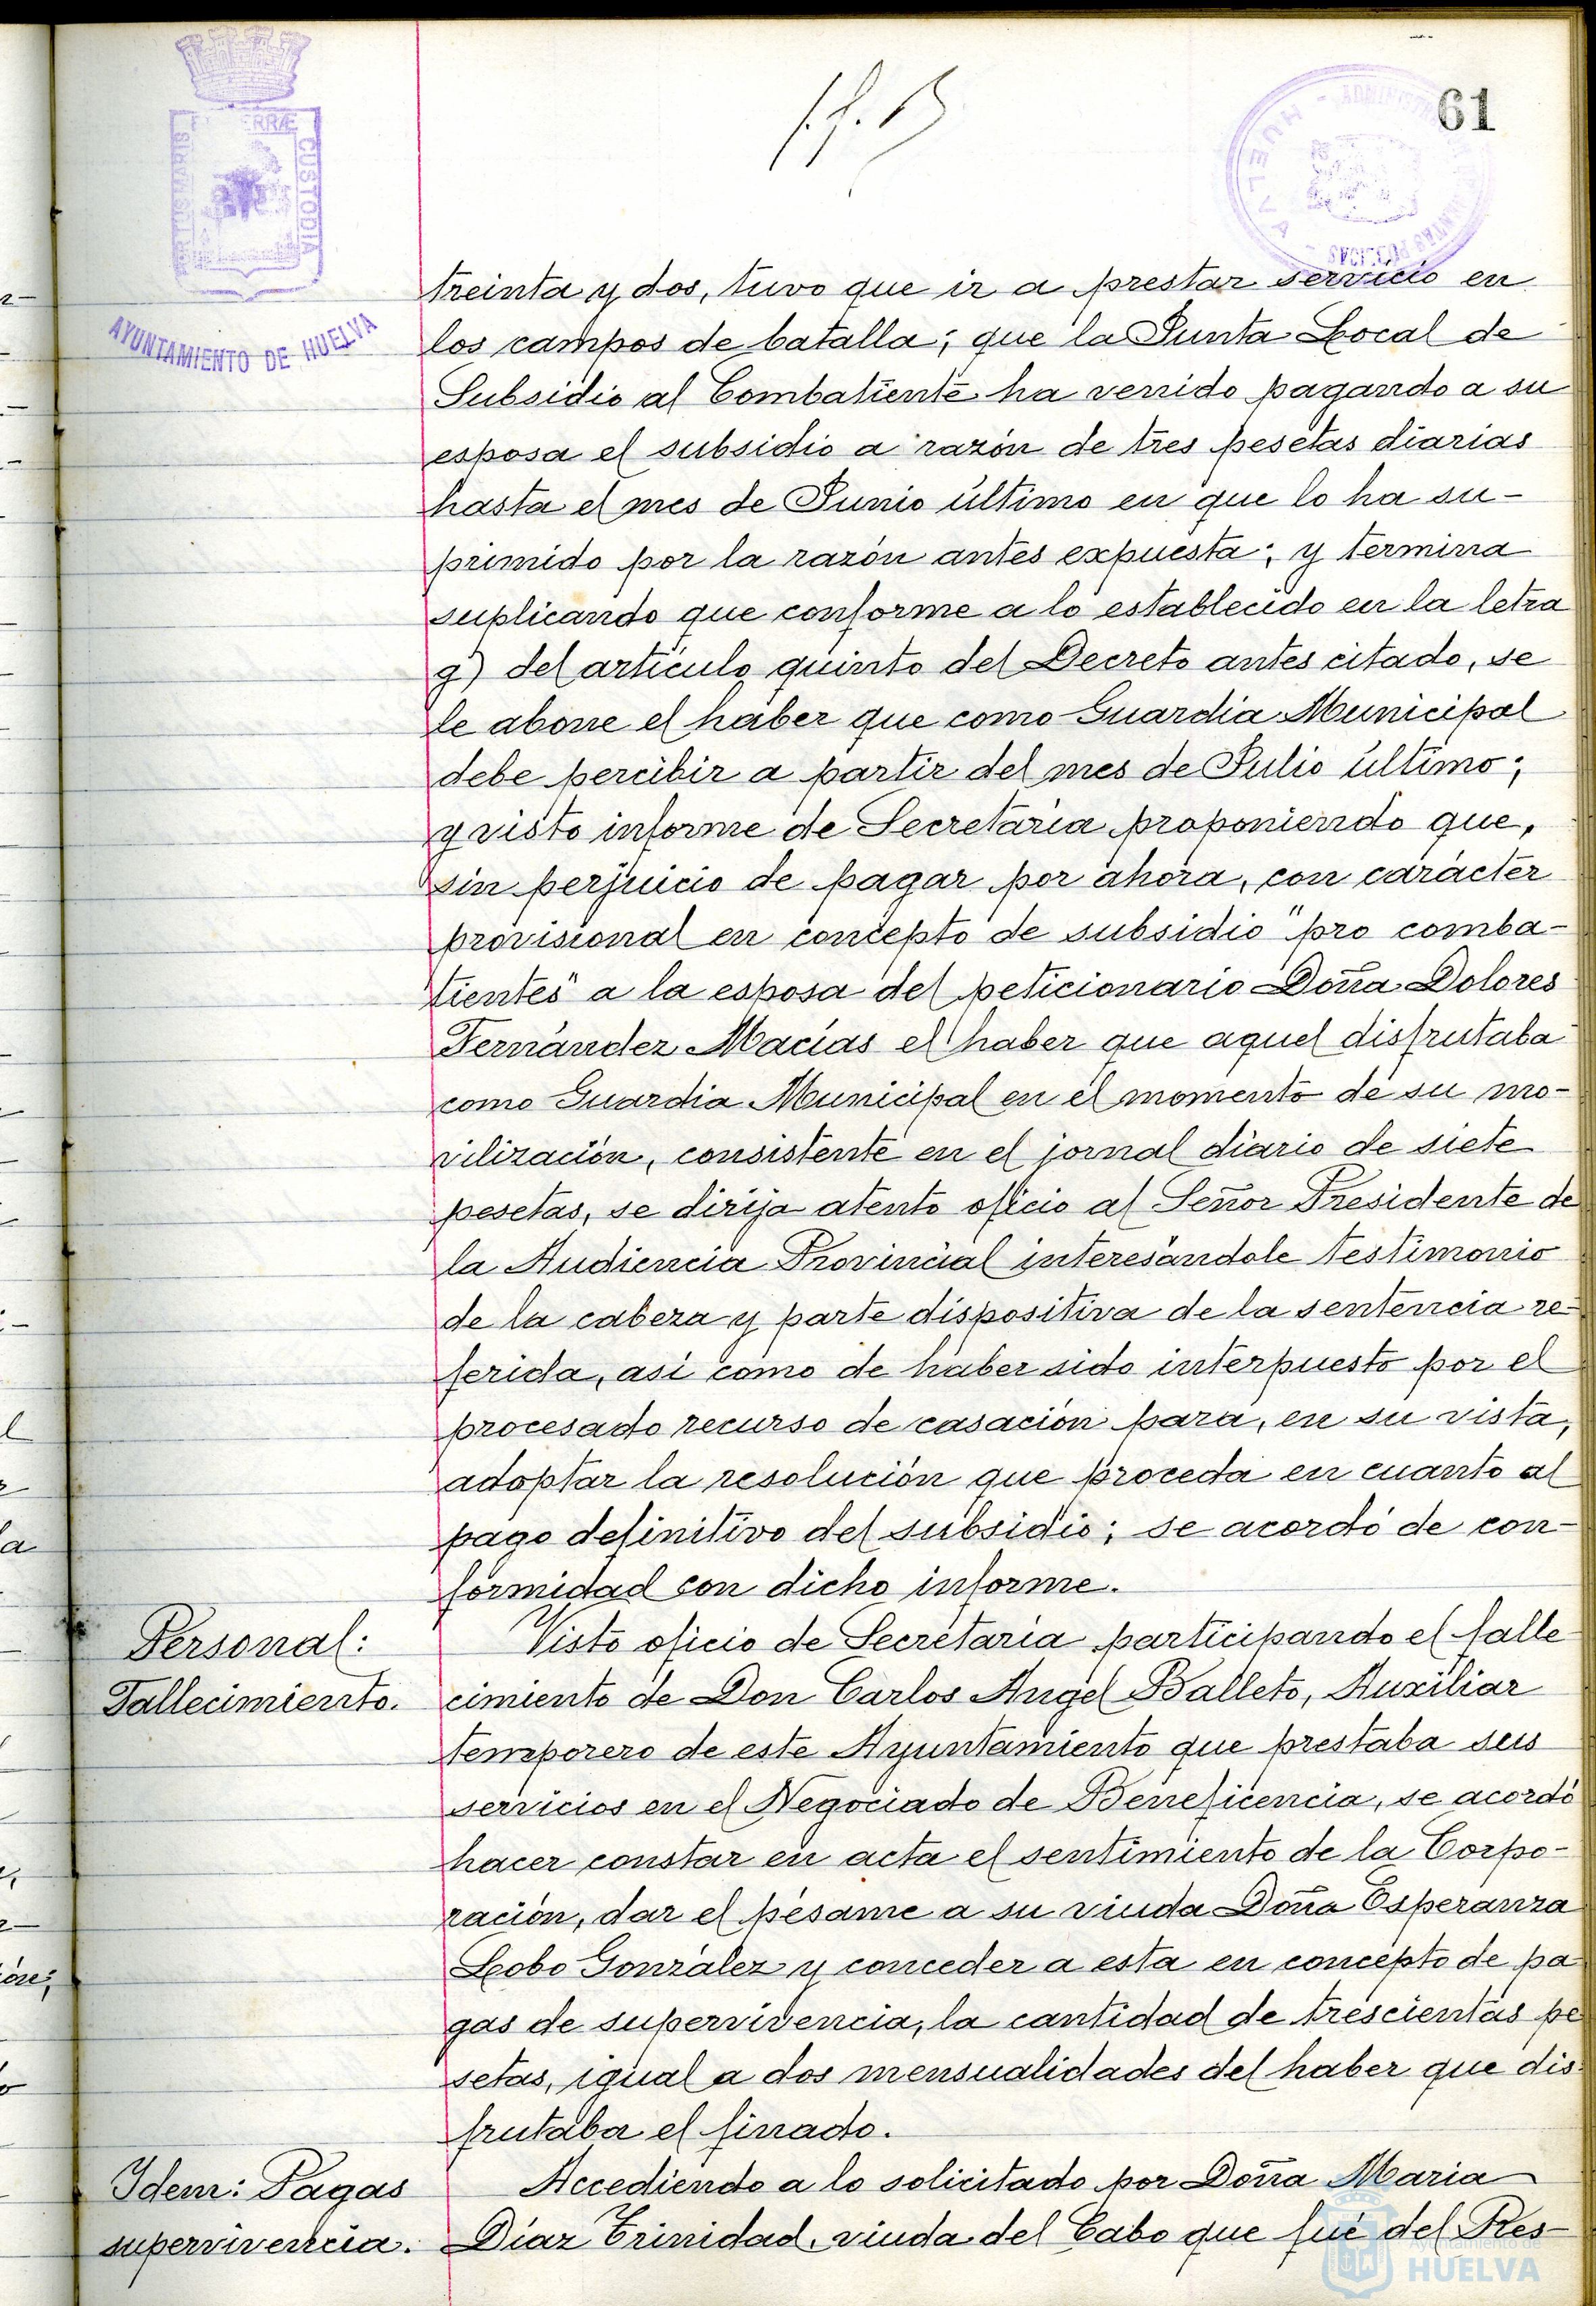 61
PORTUS MARIS
TERRÆ
CUSTODIA
AYUNTAMIENTO DE HUELVA
HUELVA
treinta y dos, tuvo que ir a prestar servicio en
los campos de batalla; que la Junta Local de
Subsidio al Combatiente ha venido pagando a su
esposa el subsidio a razón de tres pesetas diarias
hasta el mes de Junio último en que lo ha su-
primido por la razón antes expuesta; y termina
suplicando que conforme a lo establecido en la letra
g) del artículo quinto del Decreto antes citado, se
le abone el haber que como Guardia Municipal
debe percibir a partir del mes de Julio último;
y visto informe de Secretaría proponiendo que,
sin perjuicio de pagar por ahora, con carácter
provisional en concepto de subsidio "pro comba-
tientes" a la esposa del peticionario Doña Dolores
Fernández Macías el haber que aquel disfrutaba
como Guardia Municipal en el momento de su mo-
vilización, consistente en el jornal diario de siete
pesetas, se dirija atento oficio al Señor Presidente de
la Audiencia Provincial interesándole testimonio
de la cabeza y parte dispositiva de la sentencia re-
ferida, así como de haber sido interpuesto por el
procesado recurso de casación para, en su vista,
adoptar la resolución que proceda en cuanto al
pago definitivo del subsidio; se acordó de con-
formidad con dicho informe.
Personal:
Fallecimiento.
Visto oficio de Secretaría participando el falle-
cimiento de Don Carlos Angel Balleto, Auxiliar
temporero de este Ayuntamiento que prestaba sus
servicios en el Negociado de Beneficencia, se acordó
hacer constar en acta el sentimiento de la Corpo-
ración, dar el pésame a su viuda Doña Esperanza
Lobo González y conceder a esta en concepto de pa
gas de supervivencia, la cantidad de trescientas pe
setas, igual a dos mensualidades del haber que dis-
frutaba el finado.
Idem: Pagas
supervivencia.
Accediendo a lo solicitado por Doña Maria
Díaz Trinidad, viuda del Cabo que fué del Res-
Ayuntamiento de
HUELVA